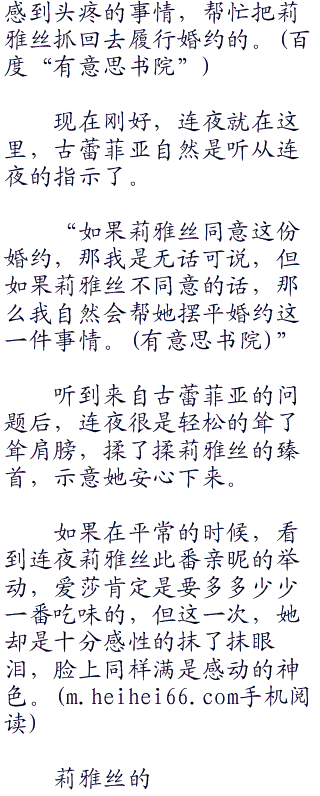 感到头疼的事情，帮忙把莉
雅丝抓回去履行婚约的。(百
度“有意思书院”)
现在刚好，连夜就在这
里，古蕾菲亚自然是听从连
夜的指示了。
“如果莉雅丝同意这份
婚约，那我是无话可说，但
如果莉雅丝不同意的话，那
么我自然会帮她摆平婚约这
一件事情。(有意思书院)”
听到来自古蕾菲亚的问
题后，连夜很是轻松的耸了
耸肩膀，揉了揉莉雅丝的臻
首，示意她安心下来。
如果在平常的时候，看
到连夜莉雅丝此番亲昵的举
动，爱莎肯定是要多多少少
一番吃味的，但这一次，她
却是十分感性的抹了抹眼
泪，脸上同样满是感动的神
色。(m.heihei66.com手机阅
读)
莉雅丝的